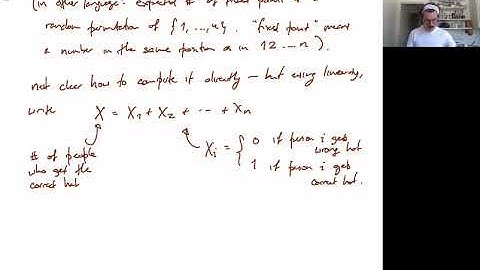 (in other language: expected # of fixed points of a
random permutation of {1, ..., n}. "fixed point" means
a number in the same position as in 12...n).
not clear how to compute it directly – but using linearity,
write X = X₁ + X₂ + ... + Xₙ
# of people
who get the
correct hat
Xᵢ = { 0 if person i gets
wrong hat
1 if person i gets
correct hat.